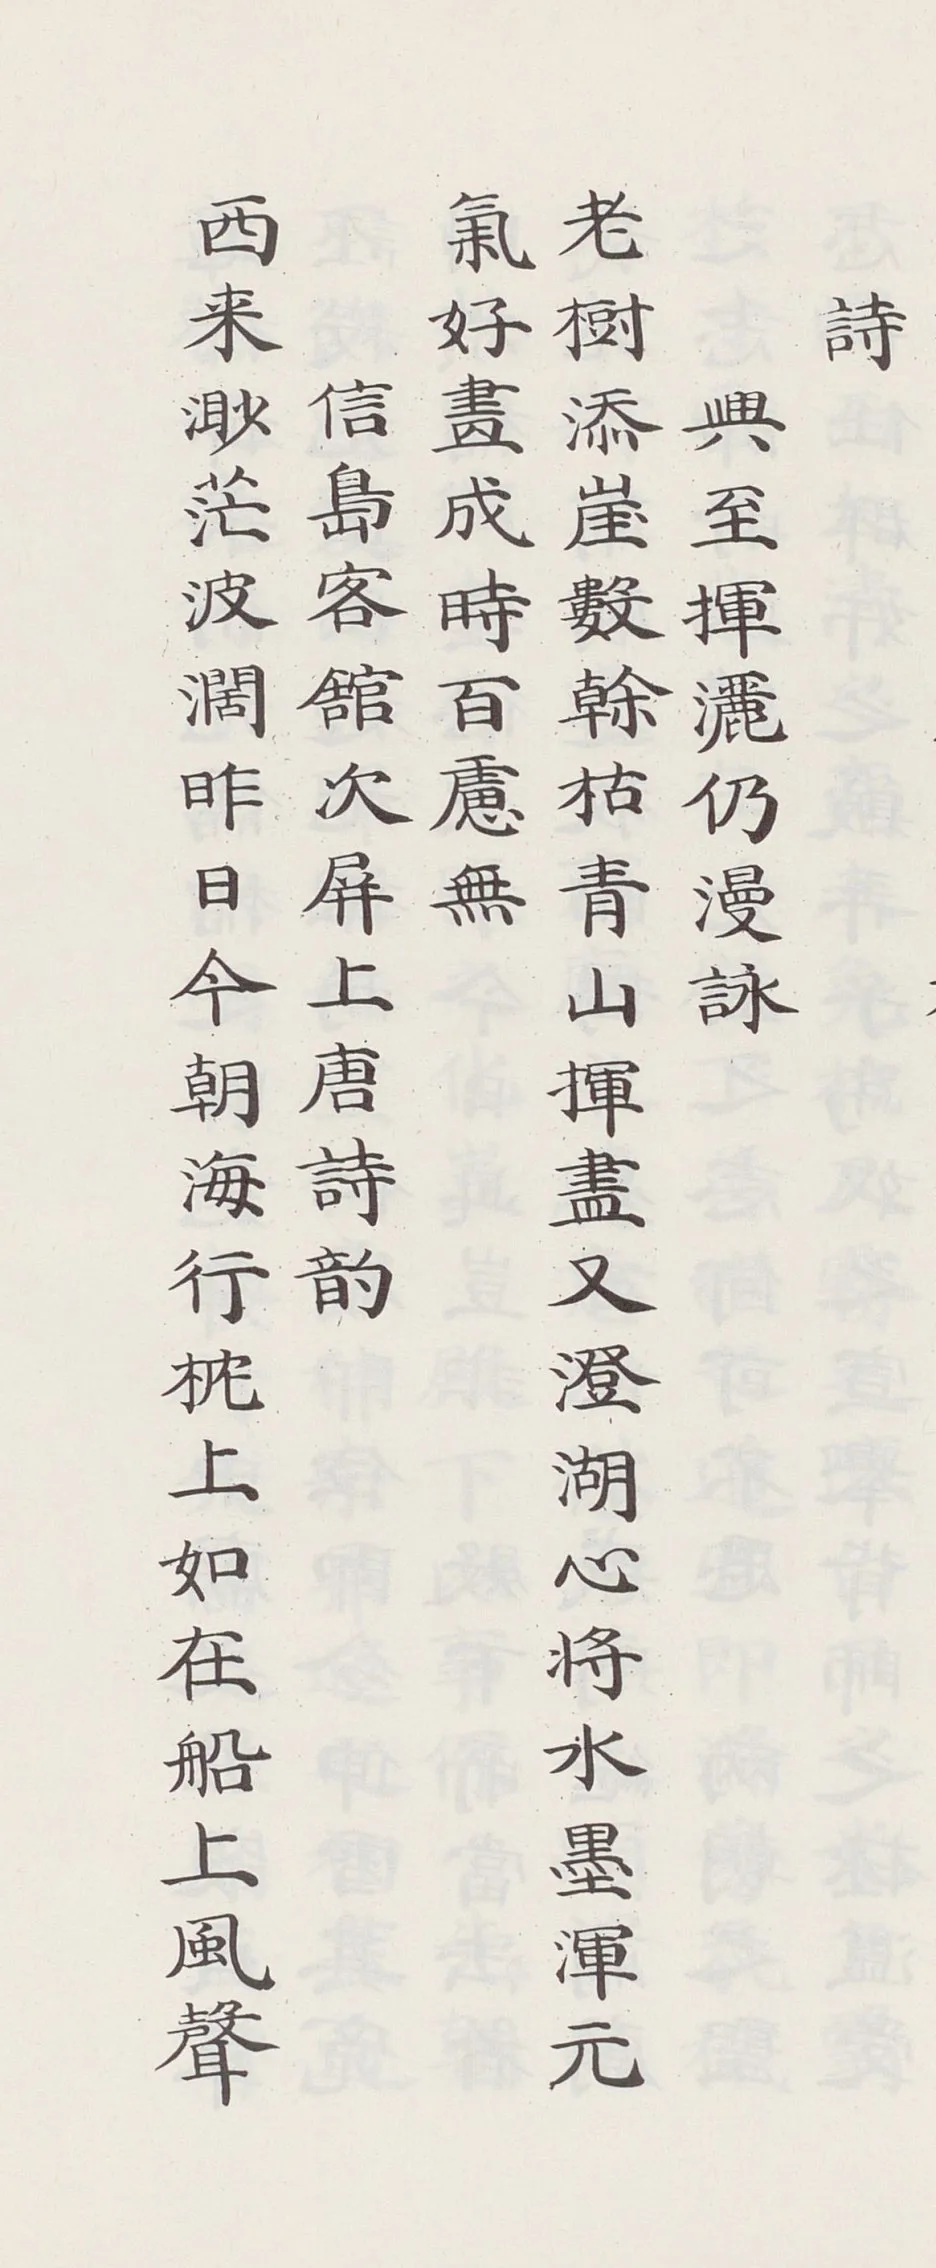 詩
興至揮灑仍漫詠
老樹添崖數榦枯青山揮盡又澄湖心將水墨渾元
氣好畫成時百慮無
信島客館次屏上唐詩韵
西来渺茫波濶昨日今朝海行枕上如在船上風聲